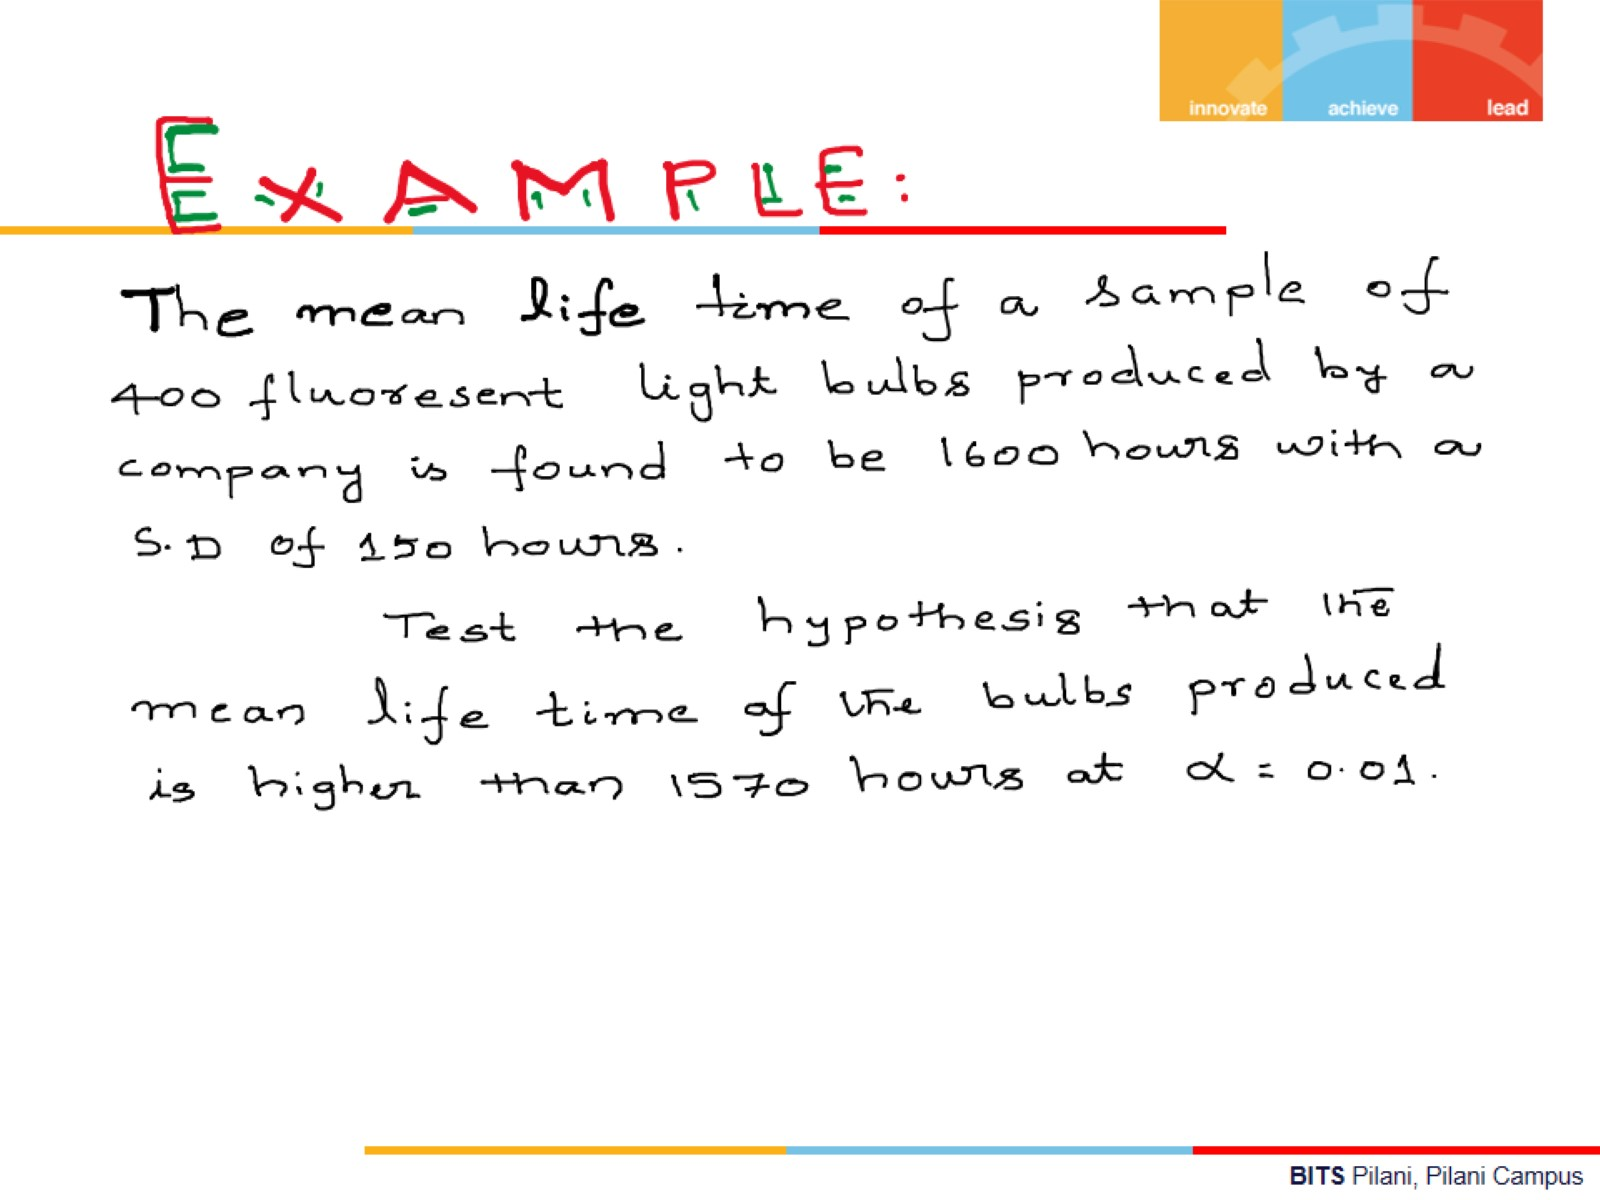 innovate achieve lead
EXAMPLE:
The mean life time of a sample of
400 fluoresent light bulbs produced by a
company is found to be 1600 hours with a
S.D of 150 hours.
Test the hypothesis that the
mean life time of the bulbs produced
is higher than 1570 hours at α = 0.01.
BITS Pilani, Pilani Campus